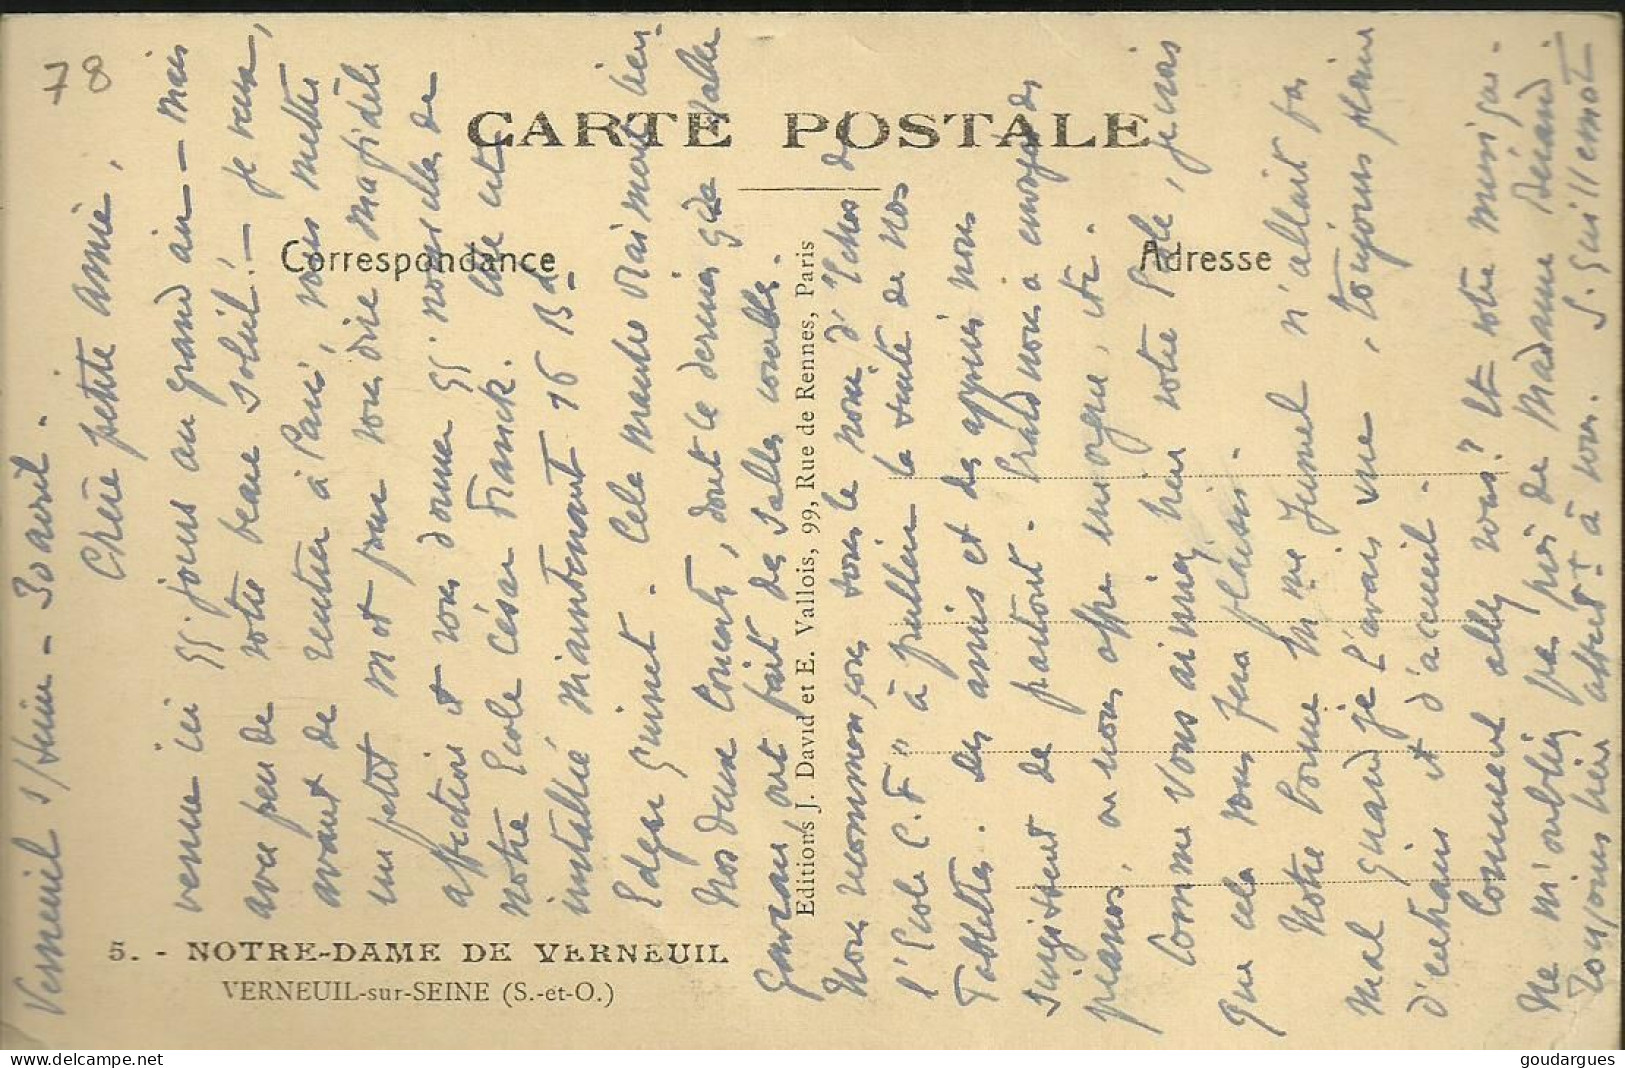 78
CARTE POSTALE
Correspondance
Adresse
Editions J. David et E. Vallois, 99, Rue de Rennes, Paris
5. - NOTRE-DAME DE VERNEUIL
VERNEUIL-sur-SEINE (S.-et-O.)
Verneuil s/Seine - 30 avril.
Chère petite amie,
venue ici qq. jours au grand air - mais
avec peu de votre beau soleil! - je veux,
avant de rentrer à Paris, vous mettre
un petit mot pour vous dire ma fidèle
affection et vous donner qq. nouvelles de
notre Ecole César Franck. Elle est
installée maintenant 16 Bd.
Edgar Quinet. Cela marche vraiment bien.
Nos deux Concerts, dont le dernier Salle
Gaveau ont fait des salles combles.
Nous nommons, sous le nom d'"Echos de
l'Ecole C.F." à publier la suite de nos
Tablettes. Des amis et des appuis nous
surgissent de partout. nous a envoyé des
pianos, on nous offre un orgue, etc.
Comme vous aimiez bien votre Ecole, je crois
que cela vous fera plaisir.
Notre bonne Mme Jumel n'allait pas
mal quand je l'avais vue, toujours pleine
d'entrain et d'accueil.
Comment allez vous? Et votre musique.
Ne m'oubliez pas près de Madame
Toujours bien affectt à vous. J. Guillemot
goudargues